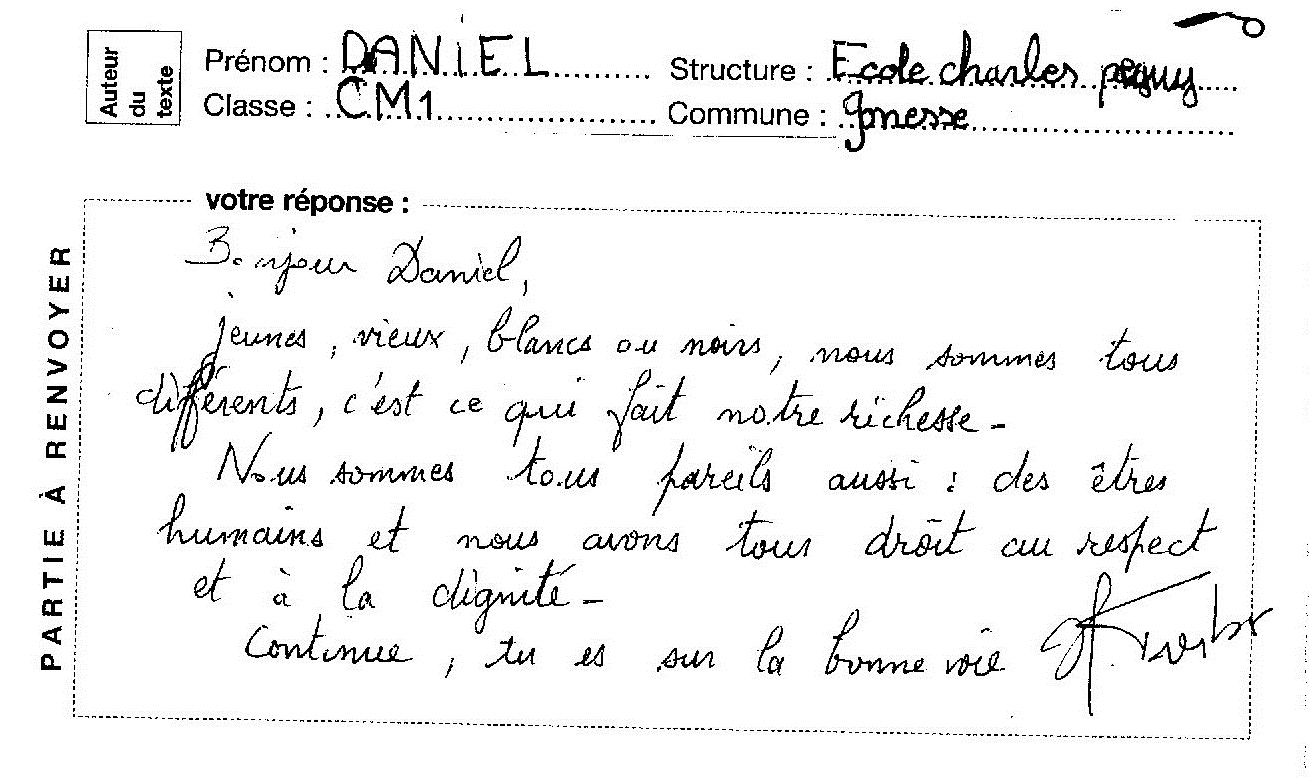 Auteur
du
texte
Prénom : DANIEL Structure : Ecole charles peguy
Classe : CM1 Commune : gonesse
votre réponse :
PARTIE À RENVOYER
Bonjour Daniel,
jeunes, vieux, blancs ou noirs, nous sommes tous
différents, c'est ce qui fait notre richesse -
Nous sommes tous pareils aussi : des êtres
humains et nous avons tous droit au respect
et à la dignité -
Continue, tu es sur la bonne voie